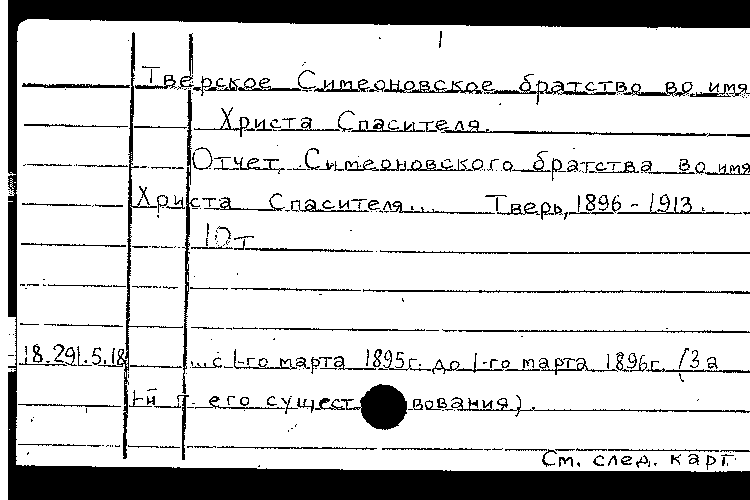 1
Тверское Симеоновское братство во имя
Христа Спасителя.
Отчет Симеоновского братства во имя
Христа Спасителя... Тверь, 1896-1913.
10т
18.291.5.18 ...с 1-го марта 1895г. до 1-го марта 1896г. (За
1-й г. его существования).
См. след. карт